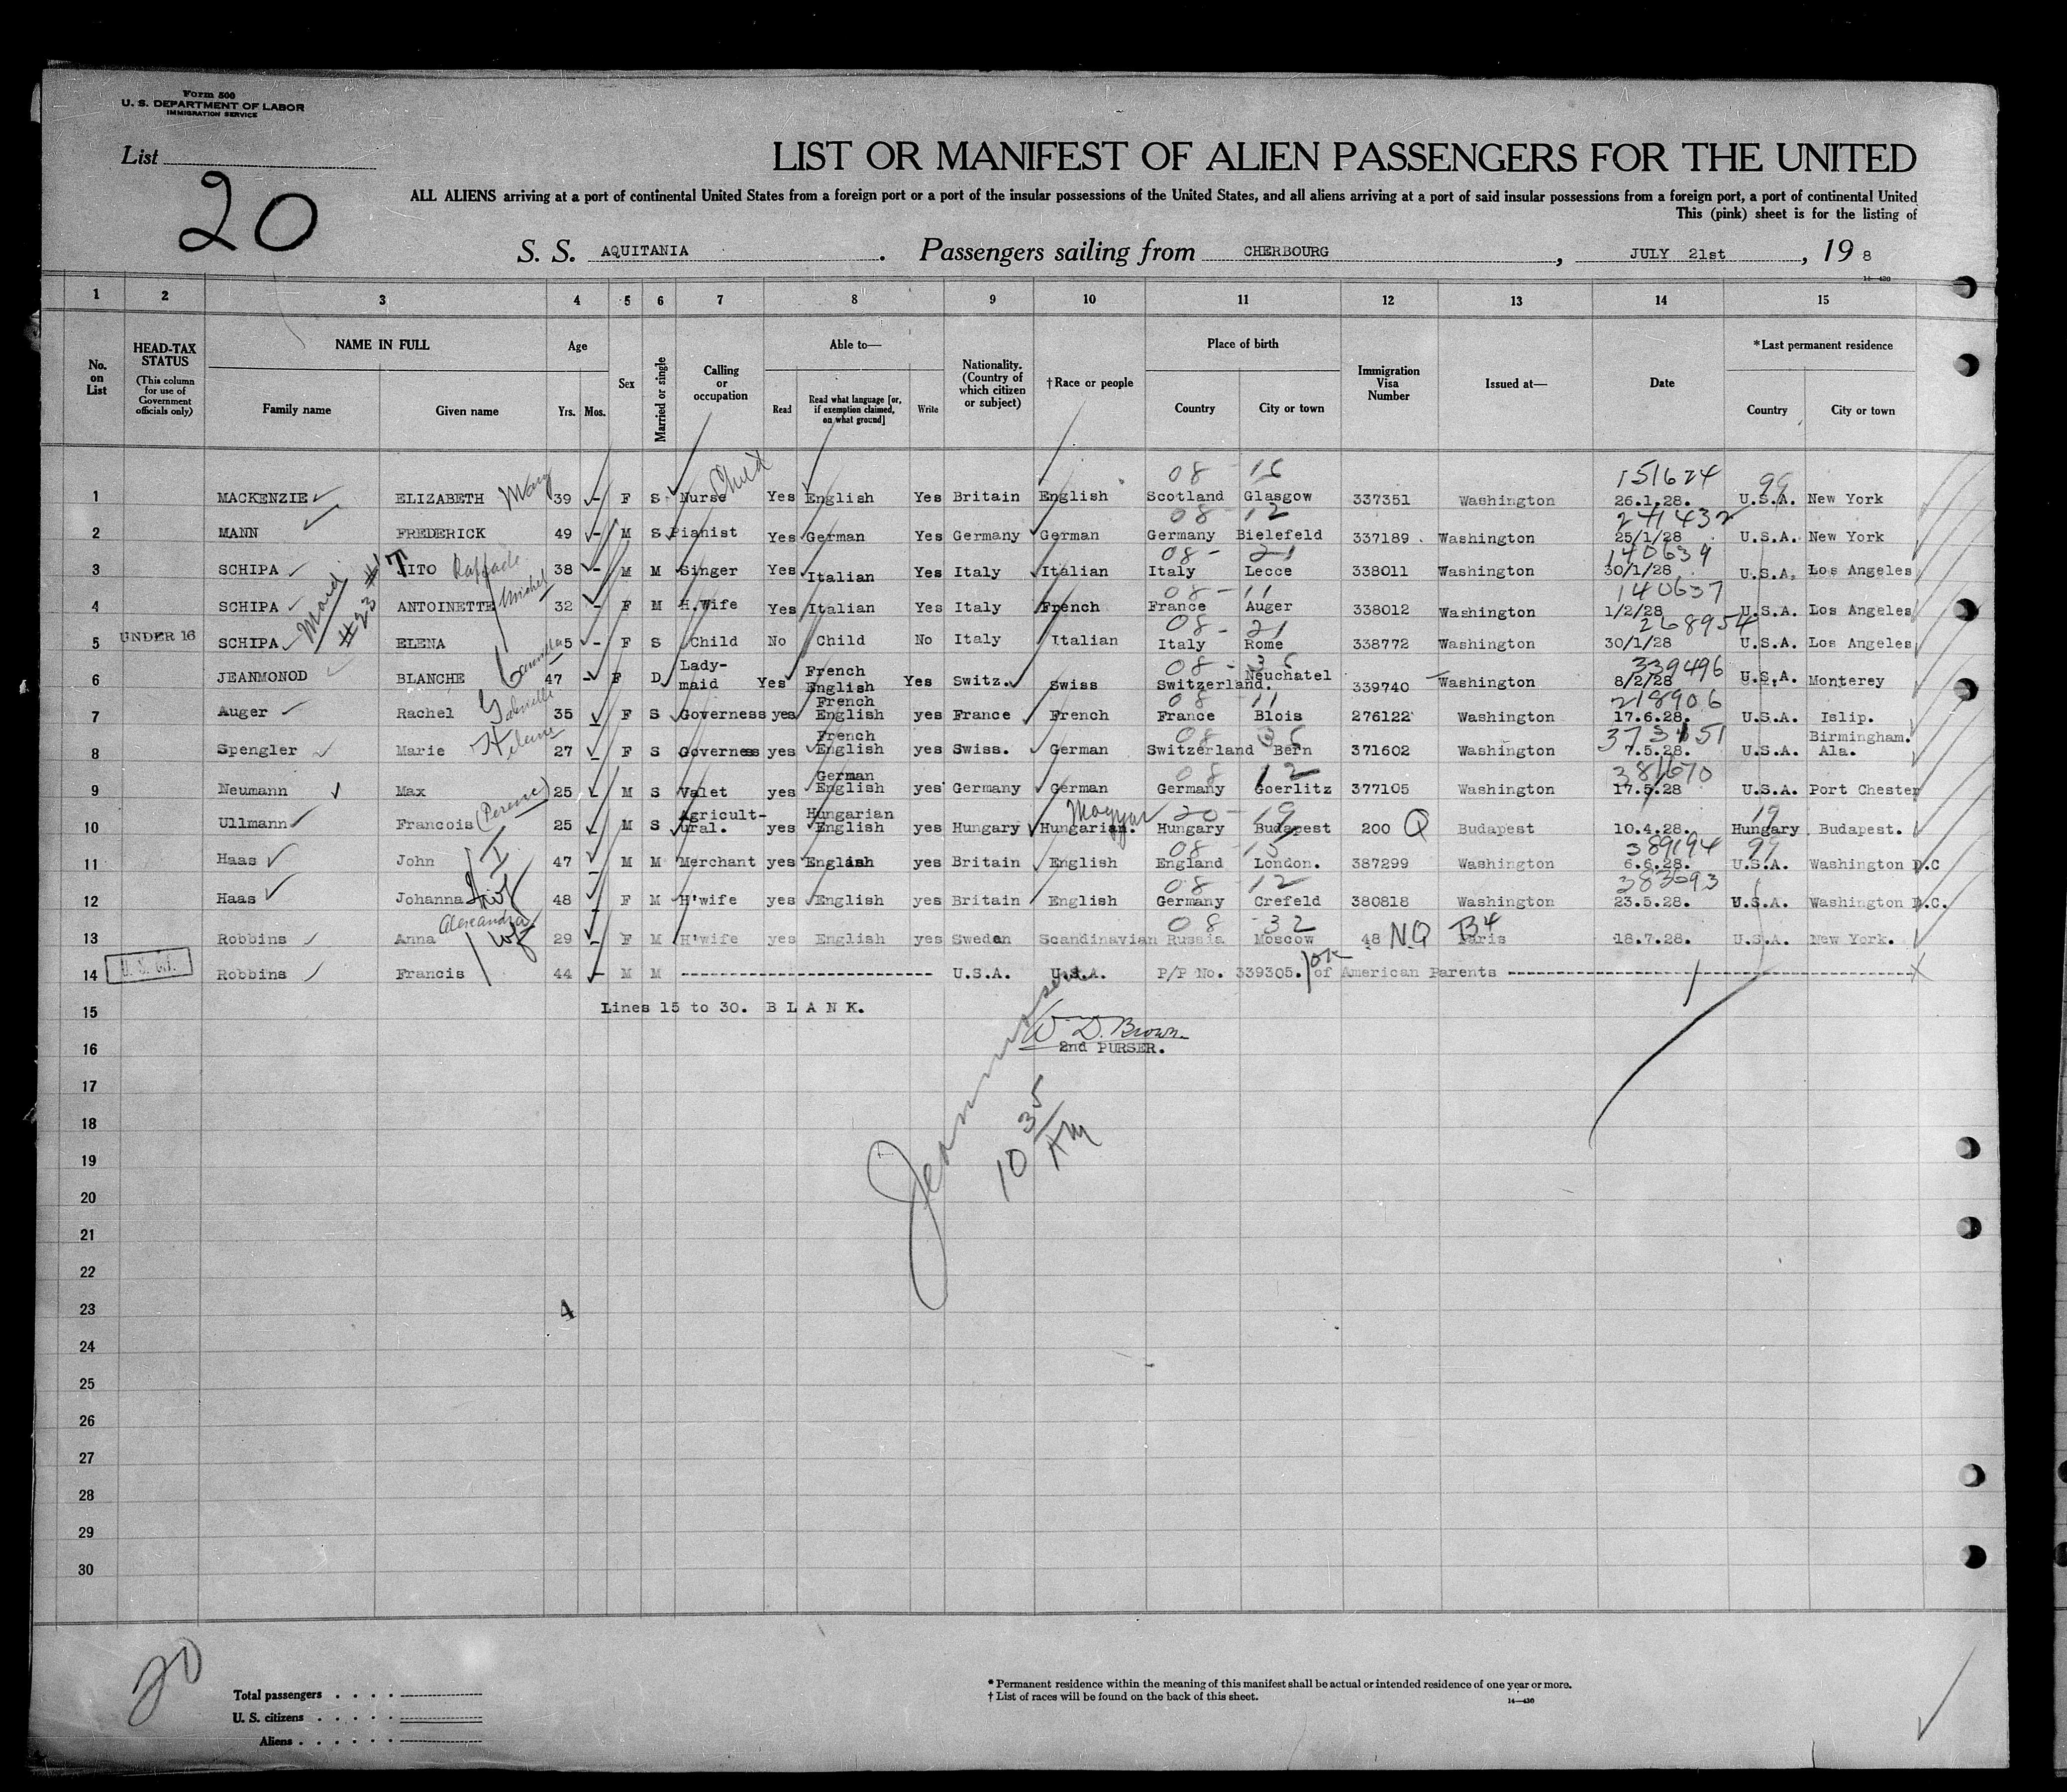 Form 500
U. S. DEPARTMENT OF LABOR
IMMIGRATION SERVICE
List
20
LIST OR MANIFEST OF ALIEN PASSENGERS FOR THE UNITED
ALL ALIENS arriving at a port of continental United States from a foreign port or a port of the insular possessions of the United States, and all aliens arriving at a port of said insular possessions from a foreign port, a port of continental United
This (pink) sheet is for the listing of
S. S. AQUITANIA. Passengers sailing from CHERBOURG, JULY 21st, 19 8
14—430
1 2 3 4 5 6 7 8 9 10 11 12 13 14 15
No. on List
HEAD-TAX STATUS (This column for use of Government officials only)
NAME IN FULL
Family name Given name
Age
Yrs. Mos.
Sex
Married or single
Calling or occupation
Able to—
Read Read what language [or, if exemption claimed, on what ground] Write
Nationality. (Country of which citizen or subject)
†Race or people
Place of birth
Country City or town
Immigration Visa Number
Issued at—
Date
*Last permanent residence
Country City or town
Child 08 - 15 151674 99
1 MACKENZIE ELIZABETH Mary 39 - F S Nurse Yes English Yes Britain English Scotland Glasgow 337351 Washington 26.1.28. U.S.A. New York
08 - 12 241432
2 MANN FREDERICK 49 - M S Pianist Yes German Yes Germany German Germany Bielefeld 337189 Washington 25/1/28 U.S.A. New York
08 - 21 140639
3 SCHIPA TITO Raffaele 38 - M M Singer Yes Italian Yes Italy Italian Italy Lecce 338011 Washington 30/1/28 U.S.A. Los Angeles
Maid #23 #1
08 - 11 140637
4 SCHIPA ANTOINETTE Michel 32 - F M H.Wife Yes Italian Yes Italy French France Auger 338012 Washington 1/2/28 U.S.A. Los Angeles
08 - 21 268954
5 UNDER 16 SCHIPA ELENA 5 - F S Child No Child No Italy Italian Italy Rome 338772 Washington 30/1/28 U.S.A. Los Angeles
08 - 35 339496
6 JEANMONOD BLANCHE 47 - F D Lady-maid Yes French English Yes Switz. Swiss Switzerland. Neuchatel 339740 Washington 8/2/28 U.S.A. Monterey
08 11 218906
7 Auger Rachel Gabrielle 35 F S Governess yes French English yes France French France Blois 276122 Washington 17.6.28. U.S.A. Islip.
08 35 373151
8 Spengler Marie Helene 27 F S Governess yes French English yes Swiss. German Switzerland Bern 371602 Washington 7.5.28. U.S.A. Birmingham. Ala.
08 12 381670
9 Neumann Max 25 M S Valet yes German English yes Germany German Germany Goerlitz 377105 Washington 17.5.28 U.S.A. Port Chester
Magyar 20 - 19 19
10 Ullmann Francois (Perenc) 25 M S Agricult-ural. yes Hungarian English yes Hungary Hungarian. Hungary Budapest 200 Q Budapest 10.4.28. Hungary Budapest.
08 - 15 389194 99
11 Haas John I 47 M M Merchant yes English yes Britain English England London. 387299 Washington 6.6.28. U.S.A. Washington D.C
08 - 12 383693
12 Haas Johanna wf 48 F M H'wife yes English yes Britain English Germany Crefeld 380818 Washington 23.5.28. U.S.A. Washington D.C.
Alexandra 08 - 32
13 Robbins Anna wf 29 - F M H'wife yes English yes Sweden Scandinavian Russia Moscow 48 NQ B4 Paris 18.7.28. U.S.A. New York.
14 U. S. Cit. Robbins Francis 44 M M U.S.A. U.S.A. P/P No. 339305. OK of American Parents
15 Lines 15 to 30. B L A N K.
16 W D. Brown
2nd PURSER.
17
10 35 AM
18
19
20
21
22
23 4
24
25
26
27
28
29
30
20
Total passengers
U. S. citizens
Aliens
* Permanent residence within the meaning of this manifest shall be actual or intended residence of one year or more.
† List of races will be found on the back of this sheet.
14—430